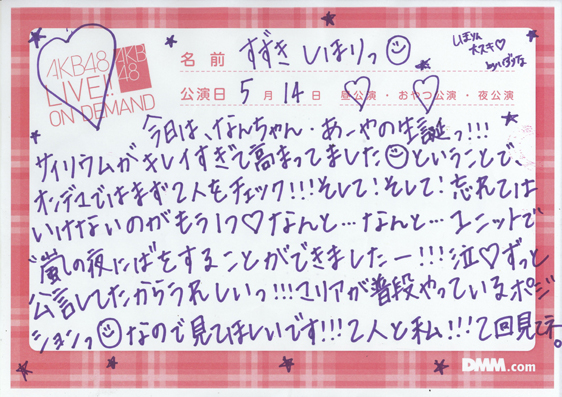 AKB48
LIVE!!
ON DEMAND
AKB
48
名前 すずき しほりっ
しほりん
大スキ♡
公演日 5月14日 昼公演・おやつ公演・夜公演
今日は、なんちゃん・あーやの生誕っ!!!
サイリウムがキレイすぎて高まってました☺ということで、
オンデユではまず2人をチェック!!!そして!そして!忘れては
いけないのがもう1つ♡なんと…なんと…ユニットで
"嵐の夜にはをすることができましたー!!!泣♡ずっと
公言してたからうれしいっ!!!マリアが普段やっているポジ
ションっ☺なので見てほしいです!!!2人と私!!!2回見てネ。
DMM.com